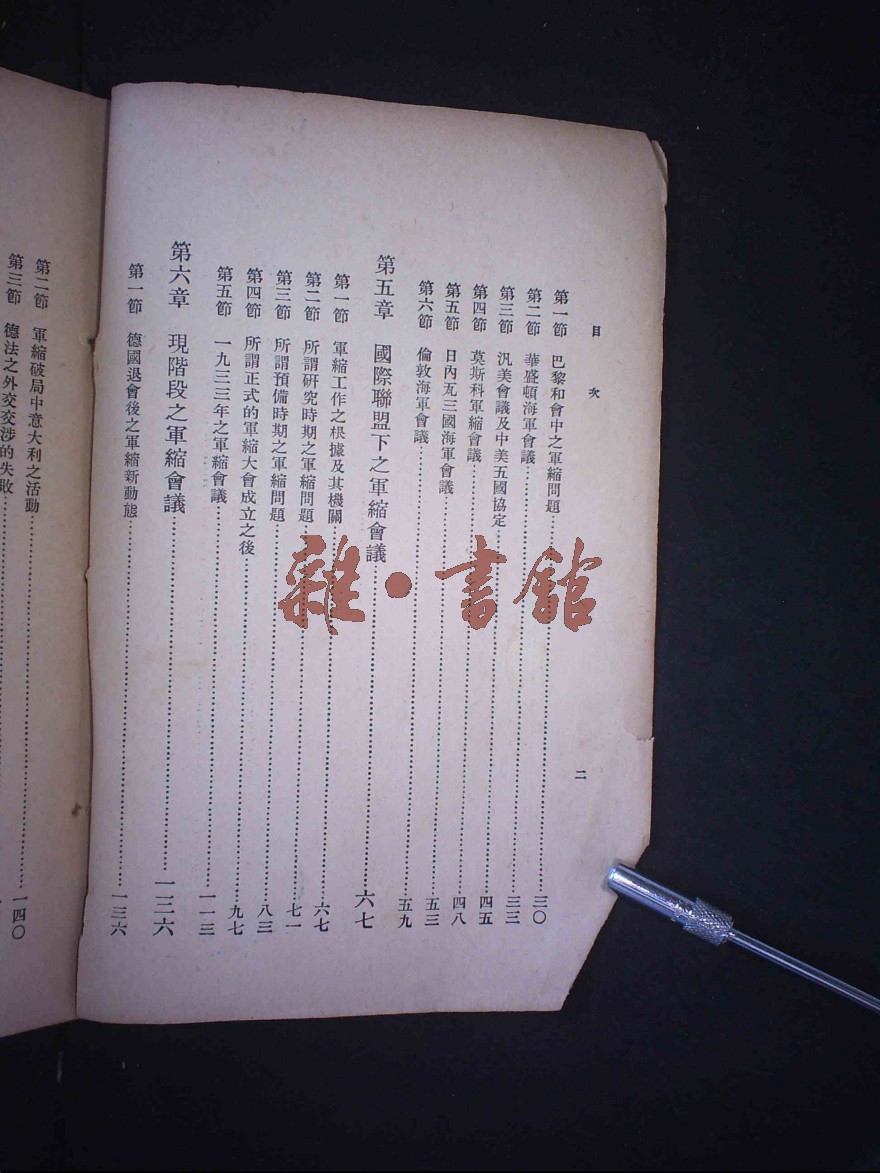 目次
第一節　巴黎和會中之軍縮問題……三〇
第二節　華盛頓海軍會議……三三
第三節　汎美會議及中美五國協定……四五
第四節　莫斯科軍縮會議……四八
第五節　日內瓦三國海軍會議……五三
第六節　倫敦海軍會議……五九
第五章　國際聯盟下之軍縮會議……六七
第一節　軍縮工作之根據及其機關……六七
第二節　所謂研究時期之軍縮問題……七一
第三節　所謂預備時期之軍縮問題……八三
第四節　所謂正式的軍縮大會成立之後……九七
第五節　一九三三年之軍縮會議……一一三
第六章　現階段之軍縮會議……一三六
第一節　德國退會後之軍縮新動態……一三六
二
第二節　軍縮破局中意大利之活動……一四〇
第三節　德法之外交交涉的失敗……
雜·書館